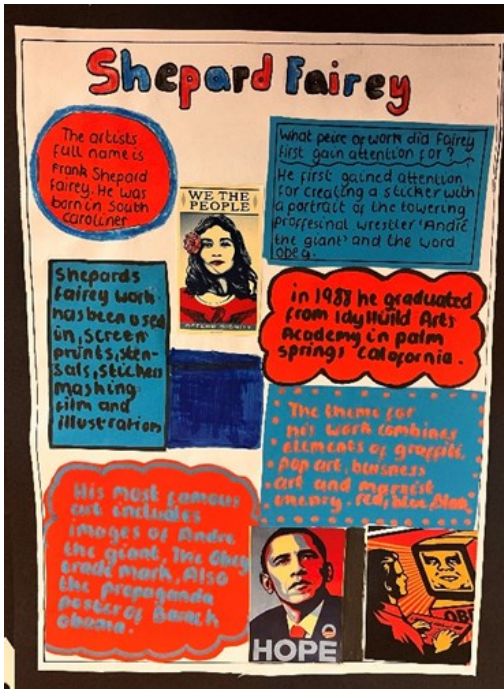 Shepard Fairey
The artists
full name is
Frank Shepard
Fairey. He was
born in South
Caroliner
What peice of work did Fairey
first gain attention for?
He first gained attention
for creating a sticker with
a portrait of the towering
proffesinal wrestler 'Andre
the giant' and the word
obey.
WE THE
PEOPLE
DEFEND DIGNITY
Shepards
fairey work
has been used
in, screen
prints, sten-
sals, stickers
masking
film and
illustration
in 1988 he graduated
from Idyllwild Arts
Academy in palm
springs calofornia.
The theme for
his work combines
elements of graffiti,
pop art, buisness
art and marxist
red, blue,
His most famous
art includes
images of Andre
the giant. The Obey
trade mark, Also
the propaganda
poster of Barack
obama.
HOPE
OBE